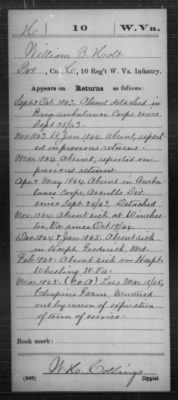 H | 10 | W. Va.
William B. Holt
Pvt, Co. , 10 Reg't W. Va. Infantry.
Appears on Returns as follows:
Sept & Oct 1863. Absent detached in
Brig ambulance Corps since
Sept 25/63.
Nov 1863 to Jan 1864. Absent, report-
ed in previous returns.
Mar 1864 Absent, reported on
previous returns.
Apr & May 1864. Absent in Ambu-
lance Corps, Averills Div
since Sept 24/63. Detached.
Nov 1864. Absent sick at Winches-
ter, Va. since Oct 19/64.
Dec 1864 & Jan 1865. Absent sick
in Hospt. Frederick, Md.
Feb 1865. Absent sick in Hospt.
Wheeling W. Va.
Mar 1865. (Co A) Loss Mar
Chapins Farm, Mustered
out by reason of expiration
of term of service.
Book mark:
Copyist.